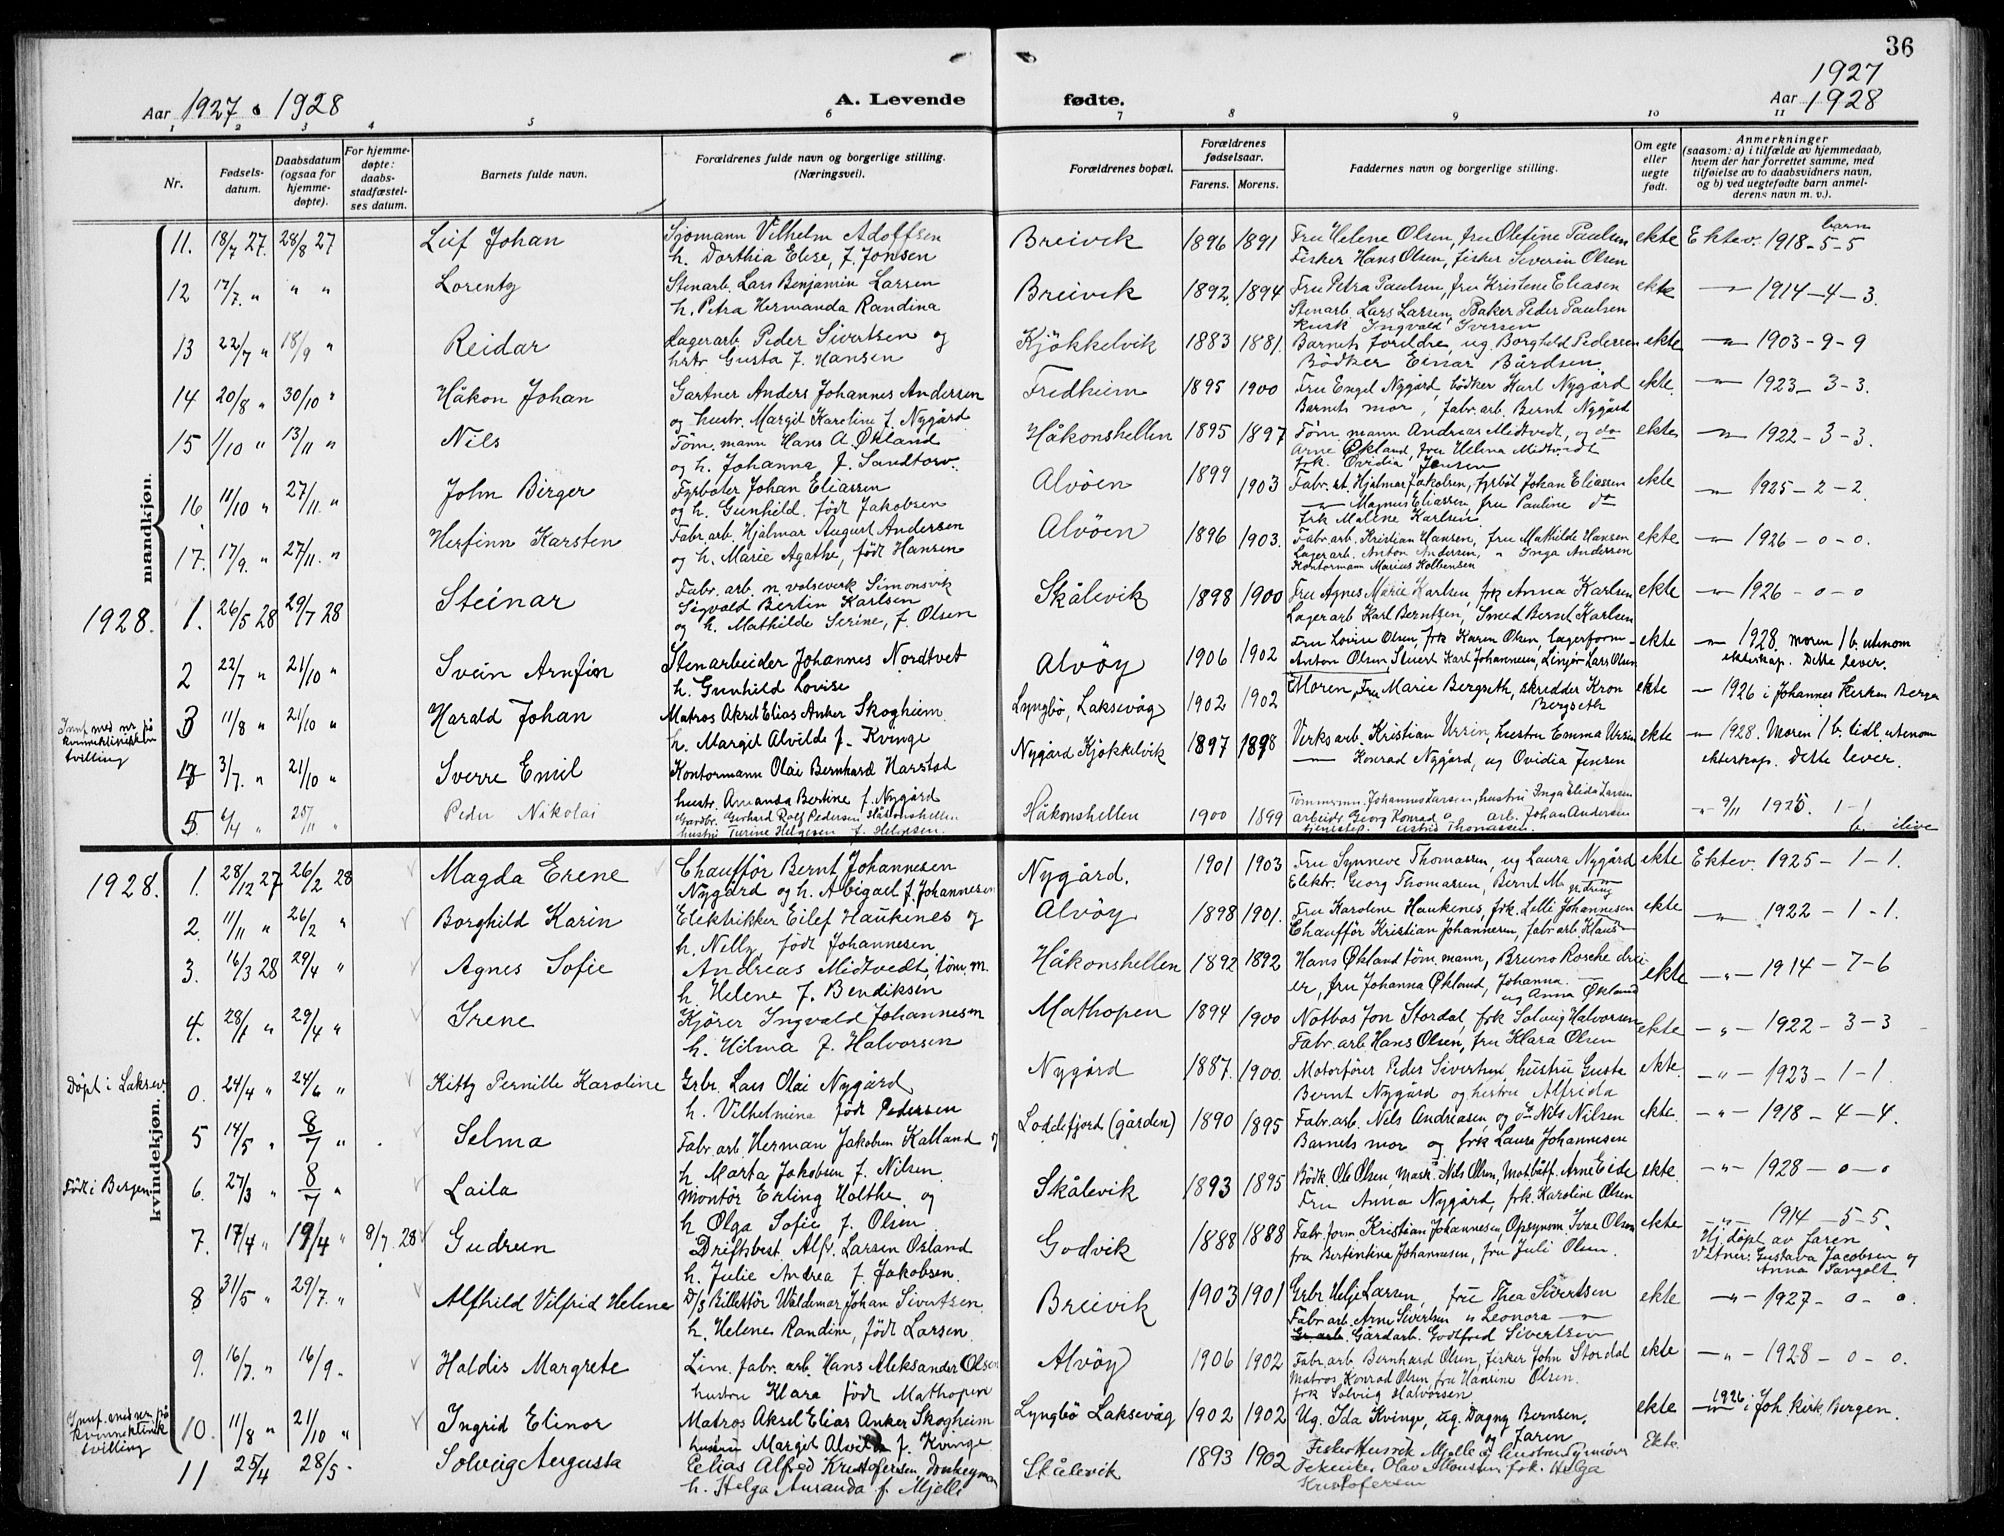 36
Aar 1927 & 1928
A. Levende
fødte.
1927
Aar 1928
1 2 3 4 5 6 7 8 9 10 11
Nr.
Fødsels-
datum.
Daabsdatum
(ogsaa for
hjemme-
døpte).
For hjemme-
døpte:
daabs-
stadfæstel-
ses datum.
Barnets fulde navn.
Forældrenes fulde navn og borgerlige stilling.
(Næringsvei).
Forældrenes bopæl.
Forældrenes
fødselsaar.
Farens. Morens.
Faddernes navn og borgerlige stilling.
Om egte
eller
uegte
født.
Anmerkninger
(saasom: a) i tilfælde av hjemmedaab,
hvem der har forrettet samme, med
tilføielse av to daabsvidners navn,
og b) ved uegtefødte barn anmel-
derens navn m. v.).
mandkjøn.
11. 18/7 27. 28/8 27 Leif Johan Sjømann Vilhelm Adolfsen Breivik 1896 1891 Fru Helene Olsen, fru Olefine Paulsen ekte Ektev. 1918-5-5 barn
h. Dorthia Elise, f. Jonsen Fisker Hans Olsen, fisker Severin Olsen
12 17/7. " " " Lorentz Stenarb. Lars Benjamin Larsen Breivik 1892. 1894 Fru Petra Paulsen, fru Kristene Eliasen ekte — 1914-4-3.
h. Petra Hermanda Randina Stenarb. Lars Larsen, Baker Peder Paulsen
Kusk Ingvald Iversen
13 22/7 " 18/9 " Reidar Lagerarb. Peder Sivertsen og Kjøkkelvik 1883 1881. Barnets foreldre, ug. Borghild Pedersen ekte — 1903-9-9
hstr. Gusta f. Hansen Bødker Einar Bårdsen
14 20/8 " 30/10 " Håkon Johan Gartner Anders Johannes Andersen Fredheim 1895 1900 Fru Engel Nygård, bødker Karl Nygård ekte. — 1923-3-3.
og hustr. Margit Karoline f. Nygård Barnets mor, fabr. arb. Bernt Nygård
15 1/10 " 13/11 " Nils Tøm. mann Hans A. Økland Håkonshellen 1895 1897 Tøm. mann Andreas Midtvedt, og do ekte — 1922-3-3.
og h. Johanna f. Sandtorv. Arne Økland, fru Helena Midtvedt
frk. Ovidia Jensen
16 11/10 " 27/11. " John Birger Fyrbøter Johan Eliassen Alvøen 1899 1903 Fabr. st. Hjelmar Jakobsen, fyrbøt Johan Eliassen ekte — 1925-2-2.
og h. Gunhild. født Jakobsen — Magnus Eliassen, fru Pauline do
frk Malene Karlsen
17. 17/9. " 27/11. " Herfinn Karsten Fabr arb. Hjalmar August Andersen Alvøen 1896 1903. Fabr. arb. Kristian Hansen, fru Mathilde Hansen ekte — 1926-0-0.
og h. Marie Agathe, født Hansen Lager arb. Anton Andersen, " Inga Andersen
Kontormann Marius Kolbensen
1928. 1. 26/5 28 29/7 28 Steinar Fabr. arb. v. valseverk Simonsvik Skålevik 1898 1900 Fru Agnes Marie Karlsen, frk Anna Karlsen ekte — 1926-0-0
Sigvald Bertin Karlsen Lager arb Karl Berntzen, Smed Bernt Karlsen
og h. Mathilde Serine, f. Olsen
2 22/7 " 21/10 " Svein Arnfin Stenarbeider Johannes Nordtvet Alvøy 1906 1902 Fru Lovise Olsen, frk Karen Olsen, lagerform— ekte — 1928. moren 1 b. utenom
h. Gunhild Lovise Anton Olsen, Stuert Karl Johannesen, Linjør Lars Olsen ekteskap. Dette lever.
Innf. med nr. på
kvinneklinikken
tvilling
3 11/8 " 21/10 " Harald Johan Matros Aksel Elias Anker Skogheim Lyngbø, Laksevåg 1902 1902 Moren, Fru Marie Bergseth, skredder Kron ekte — 1926 i Johannes Kirken Bergen
h. Margit Alvilde f. Kvinge Bergseth
4 3/7. " 21/10 " Sverre Emil Kontormann Olai Bernhard Harstad Nygård Kjøkkelvik 1897 1898 Verksarb. Kristian Ursin, hustru Emma Ursin ekte — 1928. Moren 1 b. tidl. utenom
hustr. Amanda Bertine f. Nygård — Konrad Nygård, ug Ovidia Jensen ekteskap. Dette lever.
5 6/4 " 25/11 " Peder Nikolai Gardbr. Gerhard Rolf Pedersen Håkonshellen Håkonshellen 1900 1899 Tømmermn. Johannes Larsen, hustru Inga Elida Larsen " 9/11 1925. 1-1
hustru Turine Helgesen f. Helgesen. arbeider Georg Konrad o arb. Johan Andersen b. ilive
tjenestep. Astrid Thomassen.
kvindekjøn.
1928. 1. 28/12 27 26/2 28 Magda Erene Chauffør Bernt Johannesen Nygård. 1901 1903 Fru Synneve Thomassen, ug Laura Nygård ekte Ektev. 1925-1-1.
Nygård og h. Abigael f. Johannesen Elektr. Georg Thomassen, Bernt M.
2. 11/11 " 26/2 " Borghild Karin Elektrikker Eilef Haukenes og Alvøy 1898 1901. Fru Karoline Haukenes, frk. Lelli Johannesen ekte — 1922-1-1.
h. Nelly, født Johannesen Chauffør Kristian Johannesen, fabr arb. Klaus—
3. 16/3 28 29/4 " Agnes Sofie Andreas Midtvedt, tøm. m. Håkonshellen 1892 1892 Hans Økland tøm. mann, Bruno Rosche drei- ekte -"- 1914-7-6
h. Helene f. Bendiksen er, fru Johanna Økland, Johanna —
ug Anna Økland
4. 28/1 " 29/4 " Irene Kjører Ingvald Johannesen Mathopen 1894 1900 Notbas Jon Stordal, frk Solveig Halvorsen ekte -"- 1922-3-3
h. Hilma f. Halvorsen Fabr. arb Hans Olsen, fru Klara Olsen
Døpt i Laksev. 0. 24/4 " 24/6 " Kitty Pernille Karoline Grbr. Lars Olai Nygård Nygård 1887. 1900. Motorfører Peder Sivertsen hustru Gusta ekte. -"- 1923-1-1.
h. Vilhelmina født Pedersen Bernt Nygård og hustru Alfrida
5 14/5 " 8/7 " Selma Fabr. arb Herman Jakobsen Kalland og Loddefjord (gården) 1890 1895 Fabr. arb. Nils Andreasen og do Nils Nilsen ekte. -"- 1918-4-4.
h. Marta Jakobsen f. Nilsen Barnets mor og frk Laura Johannesen
Født i Bergen 6. 27/3 " 8/7 " Laila Montør Erling Holthe og Skålevik 1893 1895 Bødk. Ole Olsen, Mask. Nils Olsen, Motbåtf. Arne Eide ekte. -"- 1928-0-0
h Olga Sofie f. Olsen Fru Anna Nygård, frk. Karoline Olsen
7. 17/4 " 19/4 " 8/7 28 Gudrun Driftsbest. Alfr. Larsen Osland Godvik 1888 1888 Fabr. form. Kristian Johannesen, Opsynsm. Ivar Olsen ekte -"- 1914-5-5.
h. Julie Andrea f. Jakobsen. fru Bertintina Johannesen, fru Juli Olsen. Hj. døpt av faren
Vitner: Gustava Jacobsen og
Anna Sangolt.
8 31/5 " 29/7. " Alfhild Vilfrid Helene D/S Billettør Waldemar Johan Sivertsen. Breivik 1903 1901 Grbr Helje Larsen, fru Thea Sivertsen ekte -"- 1927-0-0.
h. Helene Randine, født Larsen Fabr arb. Arne Sivertsen " Leonora —"—
Gr. arb. Gårdarb. Godtfred Sivertsen
9. 16/7. " 16/9. Haldis Margrete Lim. fabr. arb. Hans Aleksander Olsen Alvøy 1906 1902 Fabr. arb Bernhard Olsen, fisker John Stordal ekte -"- 1928-0-0.
hustru Klara født Mathopen Matros Konrad Olsen, fru Hansine Olsen.
frk Solveig Halvorsen
Innf. med nr. på
kvinneklinikk
tvilling
10. 11/8 " 21/10 " Ingrid Elinor Matros Aksel Elias Anker Skogheim Lyngbø Laksevåg 1902 1902 Ug. Ida Kvinge, ug. Dagny Bernsen, ekte — 1926 i Joh. kirk. Bergen.
hustru Margit Alvilde f. Kvinge og faren
11 25/4 28/5. Solveig Augusta Elias Alfred Kristofersen, donkeyman Skålevik 1893 1902 Fisker Henrik Mjelle og hustru Ekte.
h. Helga Amanda f. Mjelle Olav Monsen frk. Helga
Kristofersen